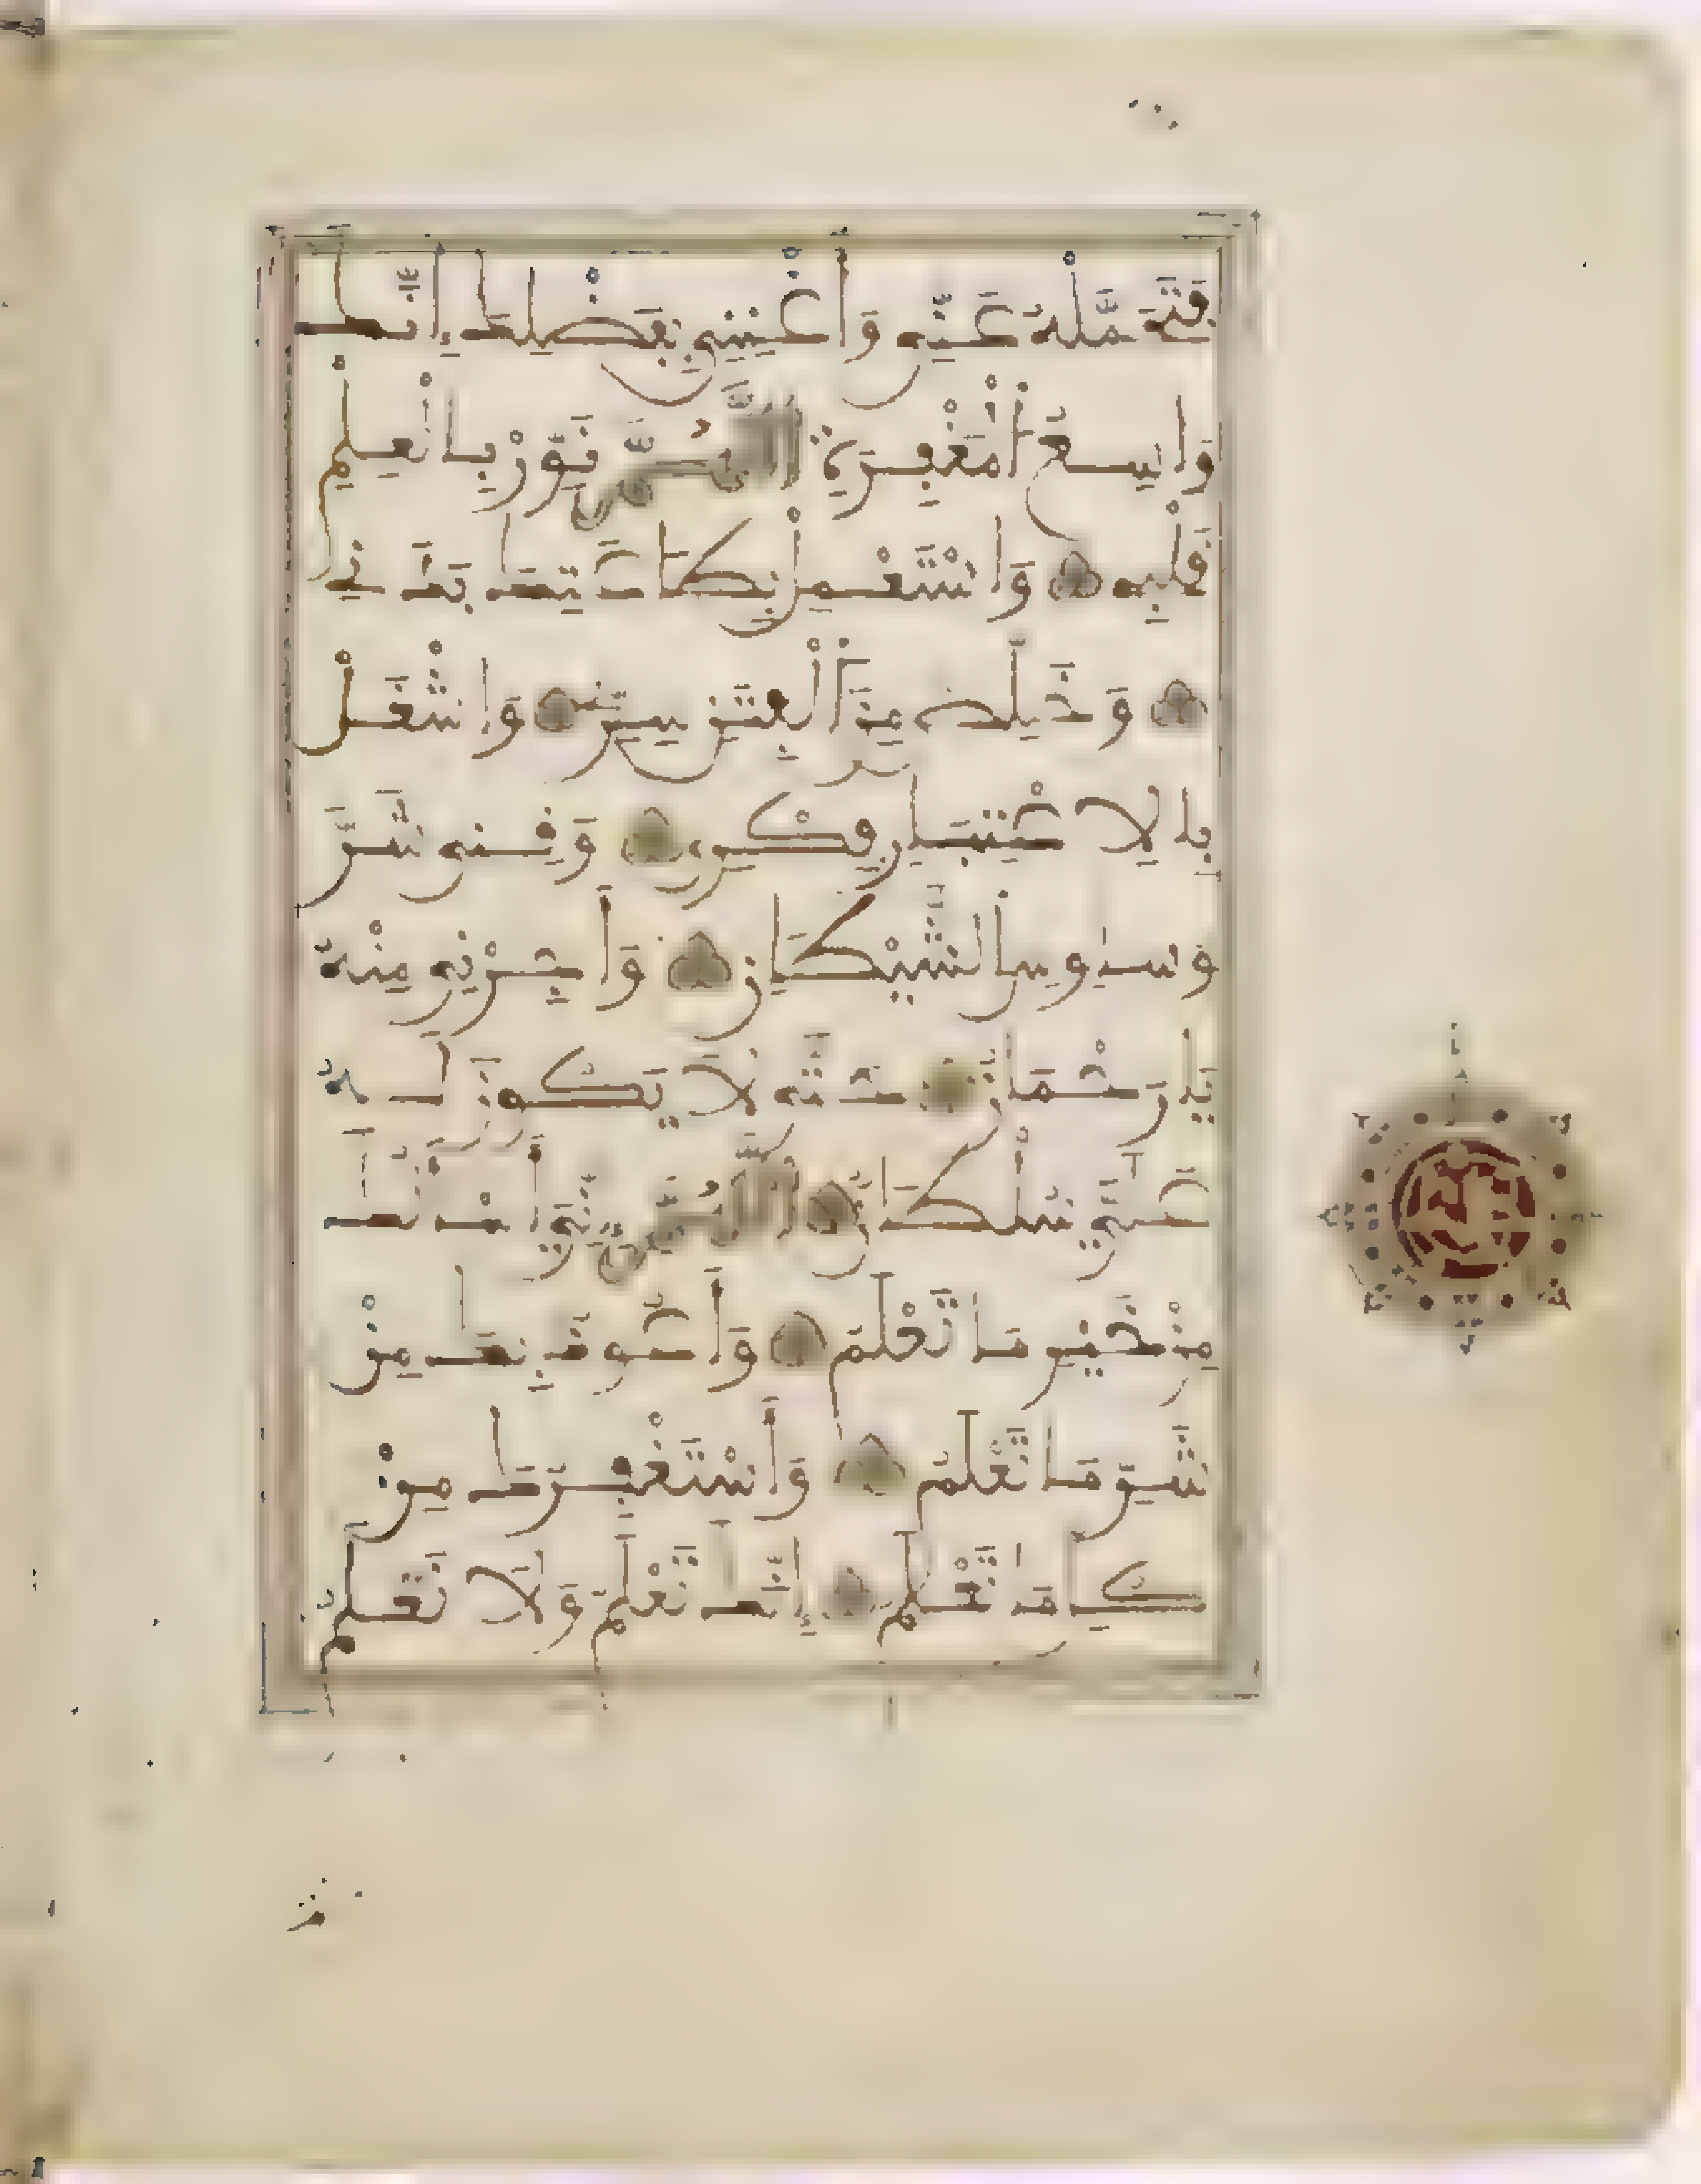 فَتَحَمَّلْهُ عَنِّي وَأَغْنِنِي بِفَضْلِكَ إِنَّكَ
وَاسِعُ الْمَغْفِرَةِ اللَّهُمَّ نَوِّرْ بِالْعِلْمِ
قَلْبِي وَاسْتَعْمِلْ بِطَاعَتِكَ بَدَنِي
وَخَلِّصْ مِنَ الْفِتَنِ سِرِّي وَاشْغَلْ
بِالِاعْتِبَارِ فِكْرِي وَقِنِي شَرَّ
وَسَاوِسِ الشَّيْطَانِ وَأَجِرْنِي مِنْهُ
يَا رَحْمَانُ حَتَّى لَا يَكُونَ لَهُ
عَلَيَّ سُلْطَانٌ اللَّهُمَّ إِنِّي أَسْأَلُكَ
مِنْ خَيْرِ مَا تَعْلَمُ وَأَعُوذُ بِكَ مِنْ
شَرِّ مَا تَعْلَمُ وَأَسْتَغْفِرُكَ مِنْ
كُلِّ مَا تَعْلَمُ إِنَّكَ تَعْلَمُ وَلَا نَعْلَمُ